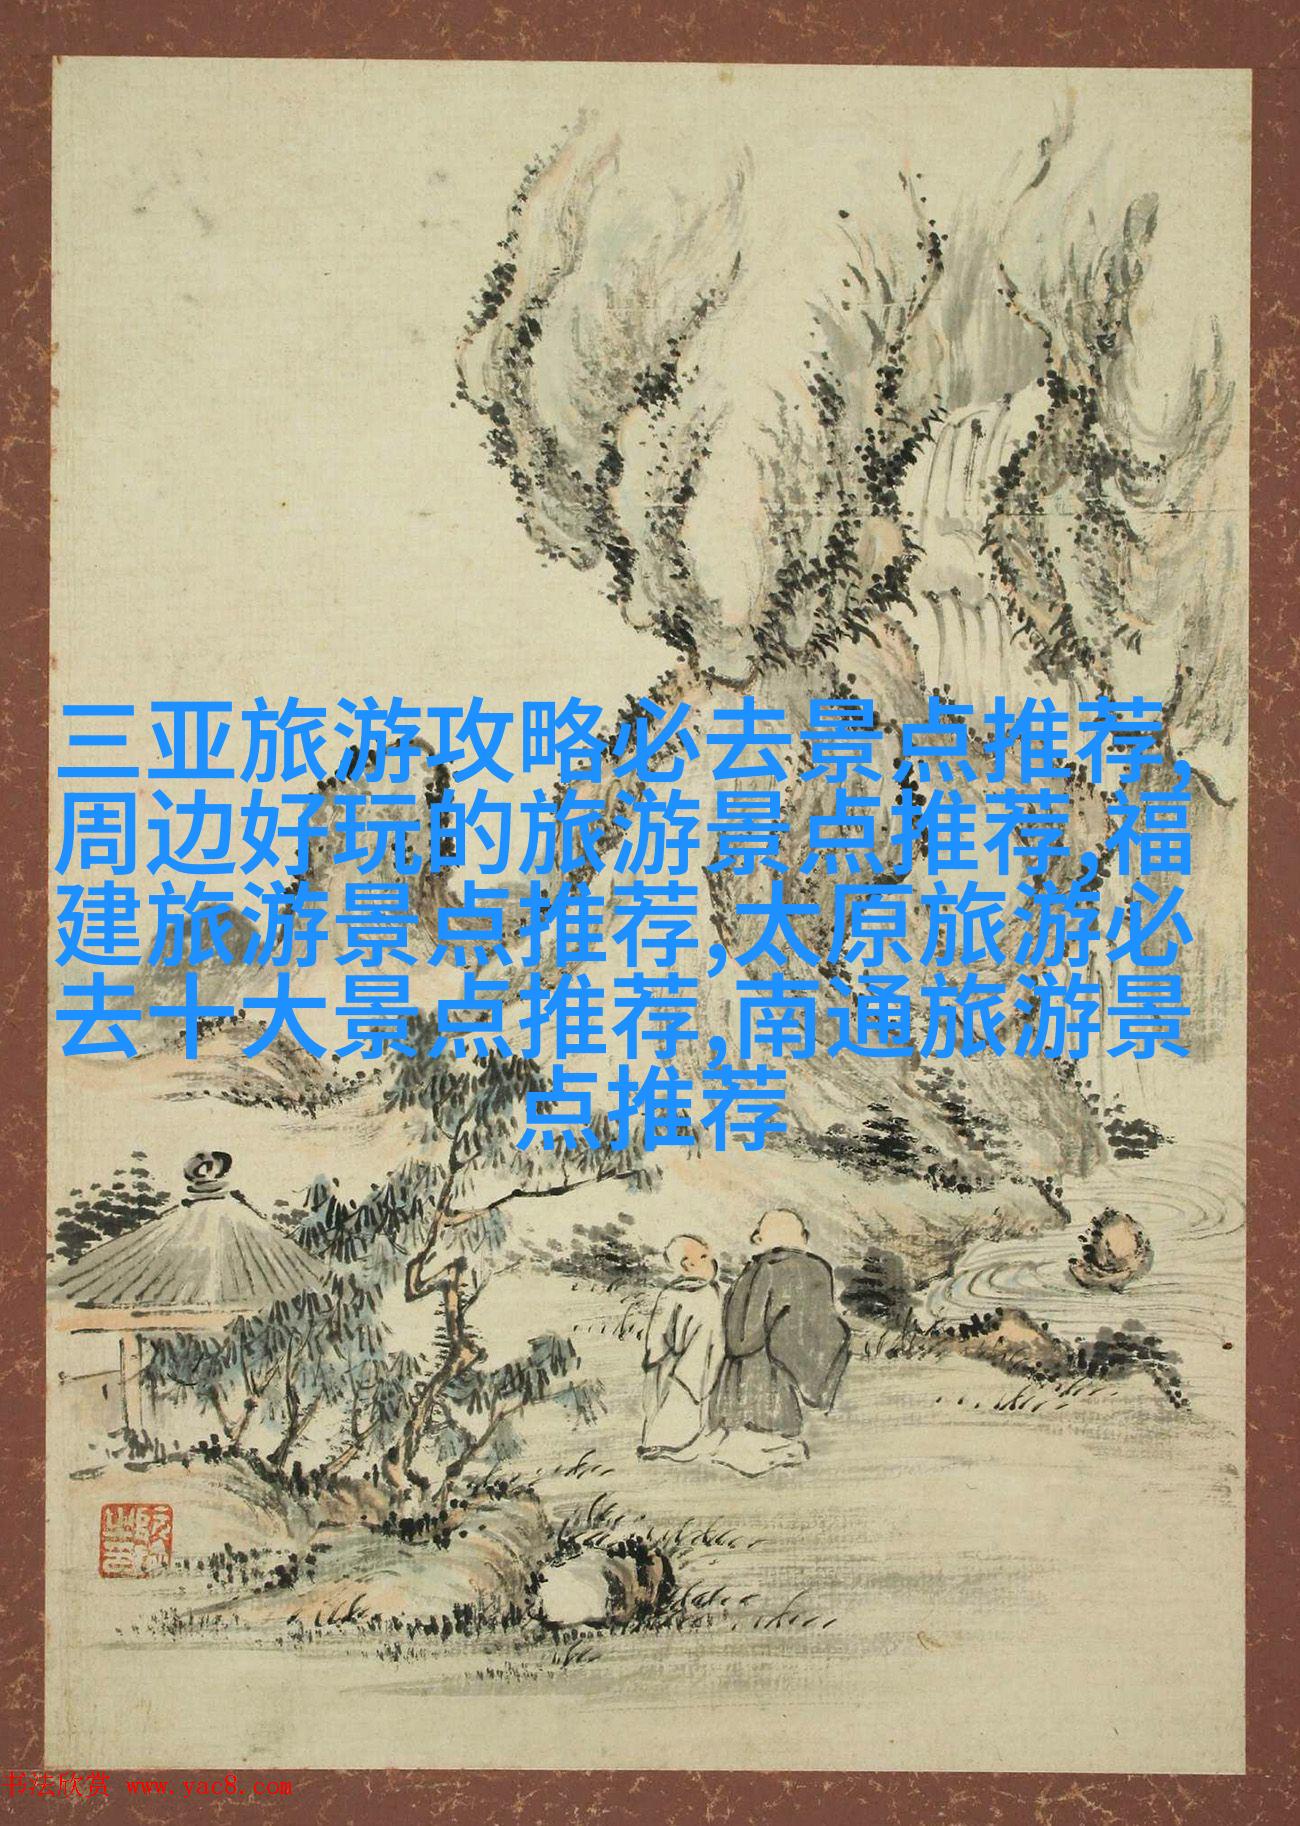 三亚旅游攻略必去景点推荐,
周边好玩的旅游景点推荐,福
建旅游景点推荐,太原旅游必
去十大景点推荐,南通旅游景
点推荐
书法欣赏 www.yac8.com